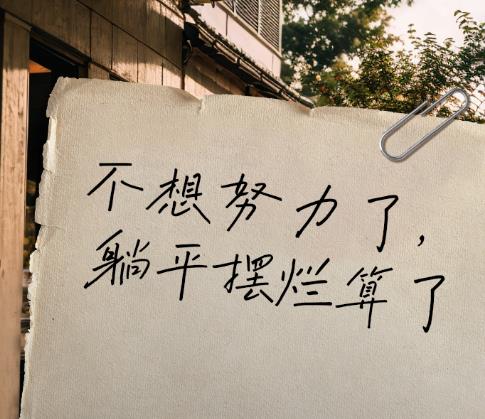 不想努力了，
躺平摆烂算了